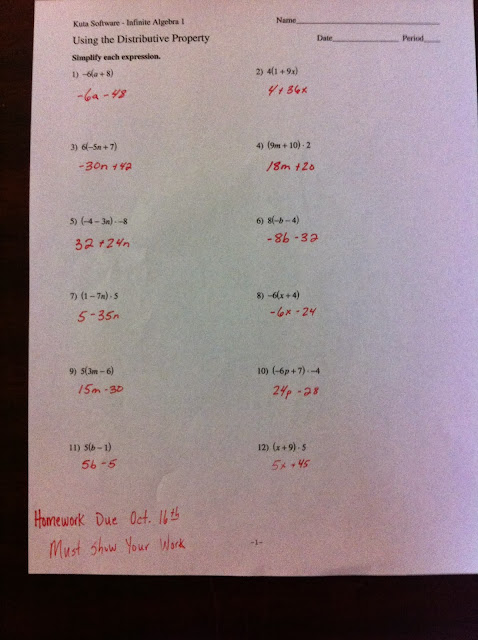 Kuta Software - Infinite Algebra 1 Name___________________
Using the Distributive Property Date________________ Period____
Simplify each expression.
1) −6(a + 8) 2) 4(1 + 9x)
-6a - 48 4 + 36x
3) 6(−5n + 7) 4) (9m + 10) · 2
-30n + 42 18m + 20
5) (−4 − 3n) · −8 6) 8(−b − 4)
32 + 24n -8b - 32
7) (1 − 7n) · 5 8) −6(x + 4)
5 - 35n -6x - 24
9) 5(3m − 6) 10) (−6p + 7) · −4
15m - 30 24p - 28
11) 5(b − 1) 12) (x + 9) · 5
5b - 5 5x + 45
Homework Due Oct. 16th
Must Show Your Work
-1-